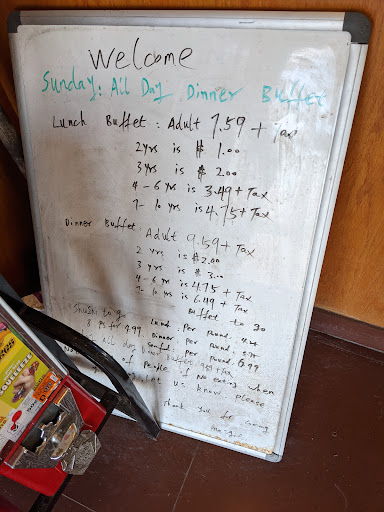 Welcome
Sunday: All Day Dinner Buffet
Lunch Buffet: Adult 7.59 + Tax
2 yrs is $ 1.00
3 yrs is $ 2.00
4 - 6 yrs is 3.49 + Tax
7 - 10 yrs is 4.75 + Tax
Dinner Buffet
Adult 9.59 + Tax
2 yrs is $ 2.00
3 yrs is $ 3.00
4 - 6 yrs is 4.75 + Tax
7 - 10 yrs is 6.49 + Tax
Sushi to go
Buffet to go
8 pcs for 4.99
Lunch: Per Pound
Dinner: Per Pound
all day Dinner Buffet
Per Pound 6.99
of People if No eating when
let us know please
Thank you for coming